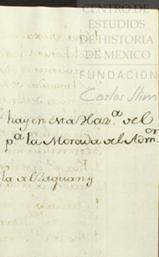 CENTRO DE
ESTUDIOS
DE HISTORIA
DE MEXICO
FUNDACIÓN
Carlos Slim
hay en esta Haz.ª del
p.ª la Morada del Adm.ᵒʳ
la el Zaguan y